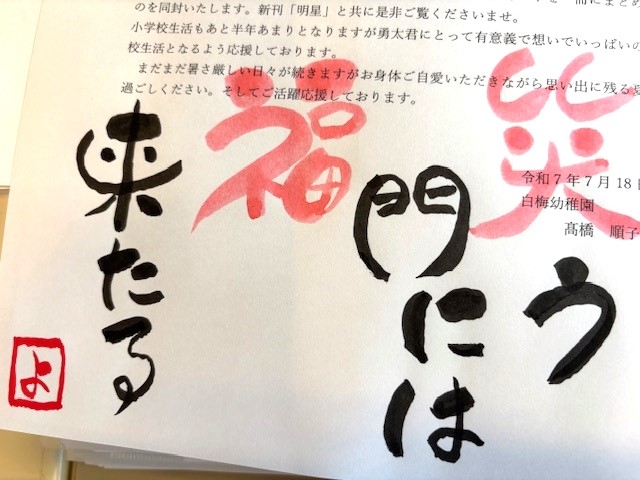 のを同封いたします。新刊「明星」と共に是非ご覧くださいませ。
小学校生活もあと半年あまりとなりますが勇太君にとって有意義で想いでいっぱいの
校生活となるよう応援しております。
まだまだ暑さ厳しい日々が続きますがお身体ご自愛いただきながら思い出に残る夏
過ごしください。そしてご活躍応援しております。
令和7年7月18日
白梅幼稚園
髙橋 順子
笑う
門には
福
来たる
よ